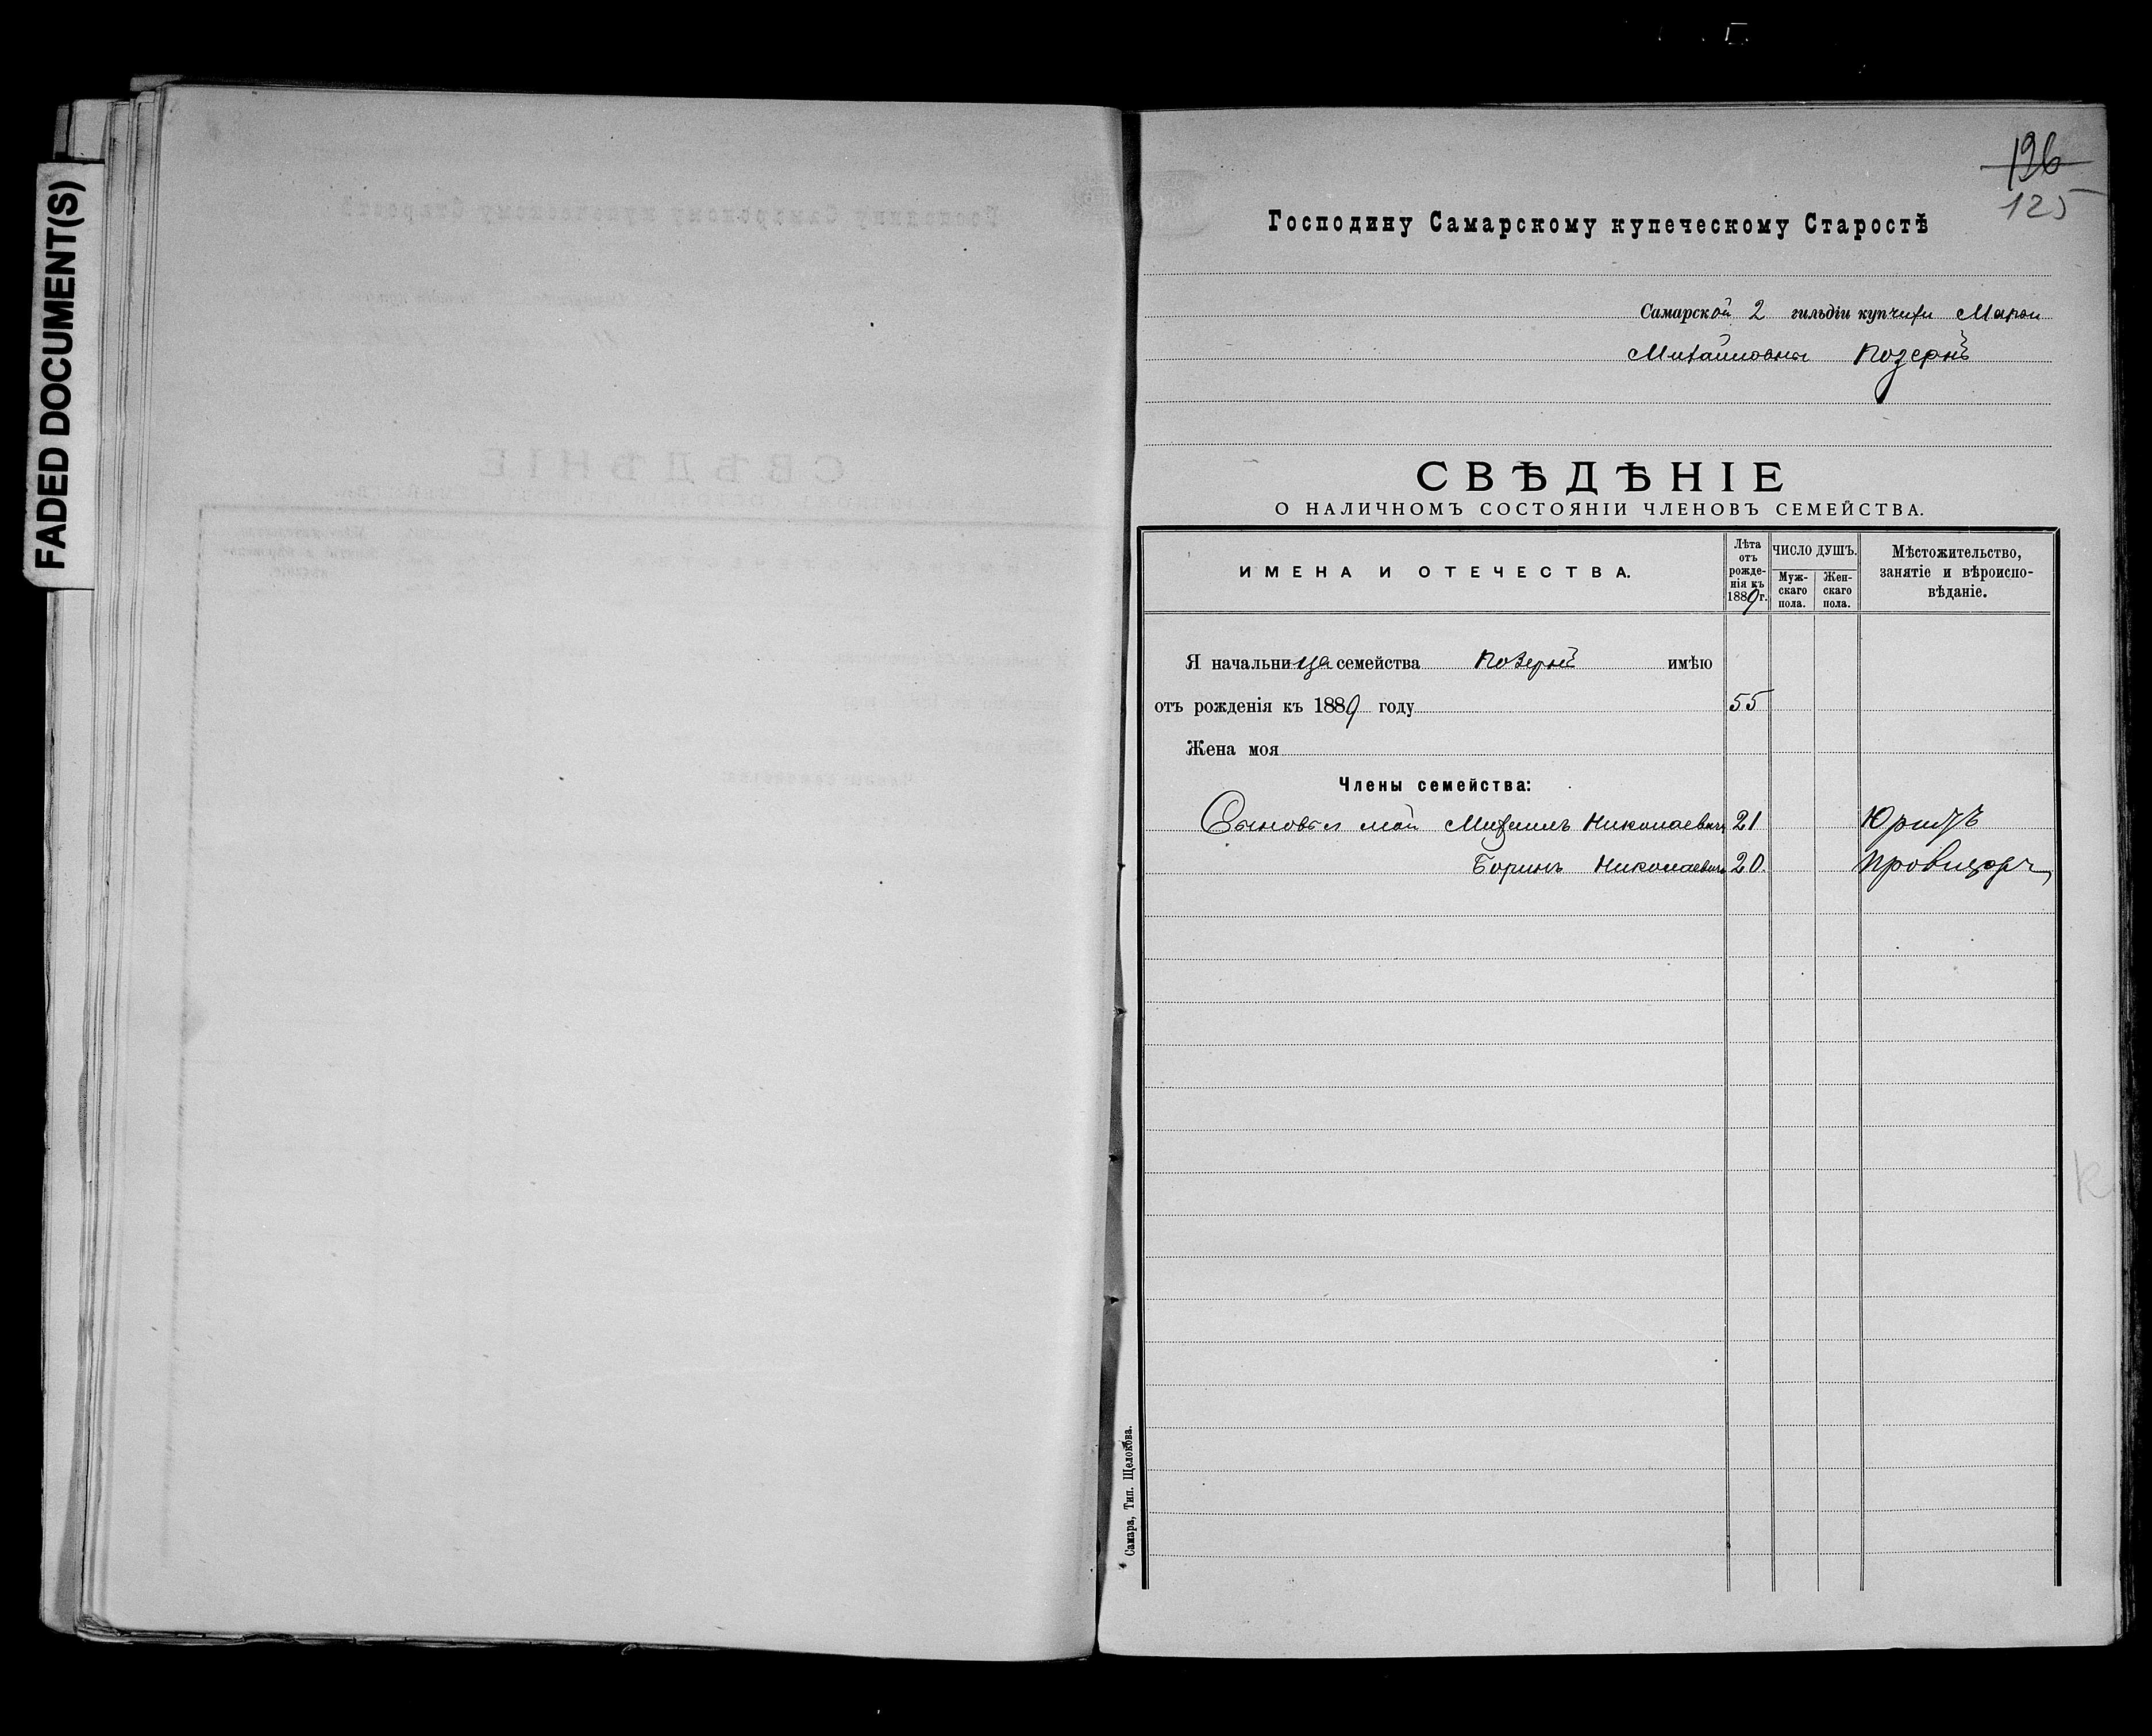 FADED DOCUMENT(S)
196
125
Господину Самарскому купеческому Старостѣ
Самарской 2 гильдіи купчихи Маріи
Михайловны Позернъ
СВѢДѢНІЕ
О НАЛИЧНОМЪ СОСТОЯНІИ ЧЛЕНОВЪ СЕМЕЙСТВА.
ИМЕНА И ОТЕЧЕСТВА.
Лѣта отъ рожде-нія къ 1889 г.
ЧИСЛО ДУШЪ.
Муж-скаго пола.
Жен-скаго пола.
Мѣстожительство, занятіе и вѣроиспо-вѣданіе.
Я начальница семейства Позернъ имѣю
отъ рожденія къ 1889 году 55
Жена моя
Члены семейства:
Сыновья мои Михаилъ Николаевичъ 21 Юристъ
Борисъ Николаевичъ 20. Провизоръ
Самара, Тип. Щелокова.